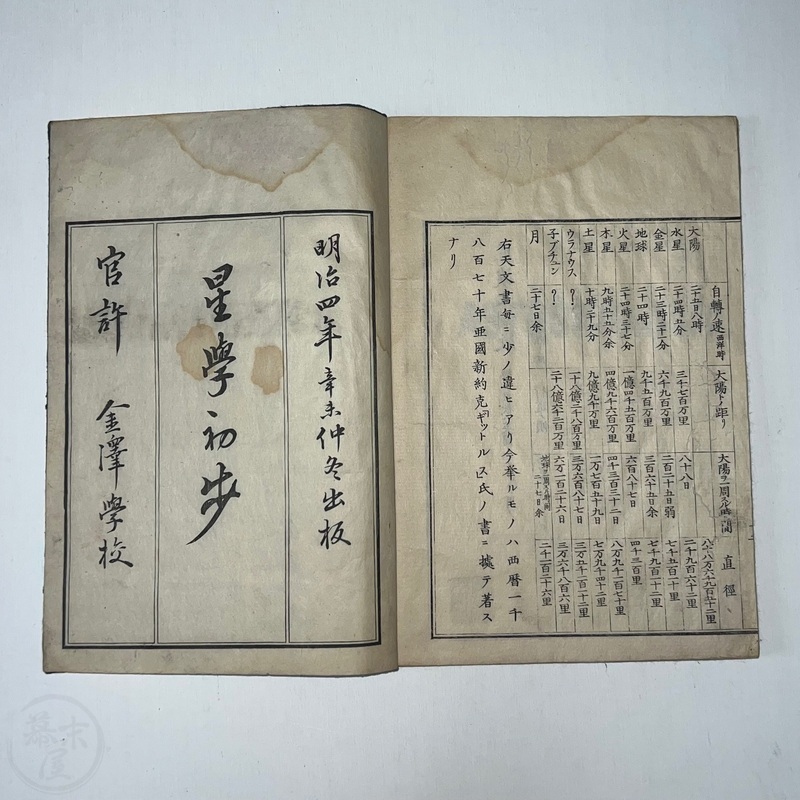 自轉ノ速 西洋時 大陽トノ距リ 大陽ヲ一周スル時間 直徑
大陽 二十五日八時
水星 二十四時五分 三千七百万里 八十八日 二千九百六十二里
金星 二十三時二十一分 六千九百万里 二百二十五日弱 七千五百十里
地球 二十四時 九千五百万里 三百六十五日余 七千九百十二里
火星 二十四時三十七分 一億四千五百万里 六百八十七日 四千三百里
木星 九時五十五分余 四億九千六百万里 四千三百三十二日 八万九千一百七十里
土星 十時二十九分 九億九千万里 一万七百五十九日 七万九千四十二里
ウラナウス ? 十八億二千八百万里 三万六百八十七日 三万五千一百十二里
子プチュン ? 二十八億六千二百万里 六万一百二十六日 三万六千八百六里
月 二十七日余 地球ヲ一周スル時間二十七日余
右天文書毎ニ少ノ違ヒアリ今举ルモノハ西曆一千
八百七十年亜國新約克ギットル氏ノ書ニ據テ著ス
ナリ
明治四年辛未仲冬出板
星學初步
官許 金澤學校
幕末屋